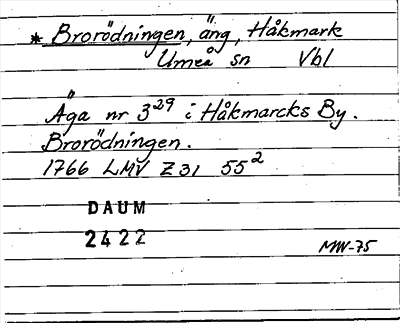 * Brorödningen, äng, Håkmark
Umeå sn Vbl
Äga nr 3²⁹ i Håkmarcks By.
Brorödningen.
1766 LMV Z31 55²
DAUM
2422
MW-75